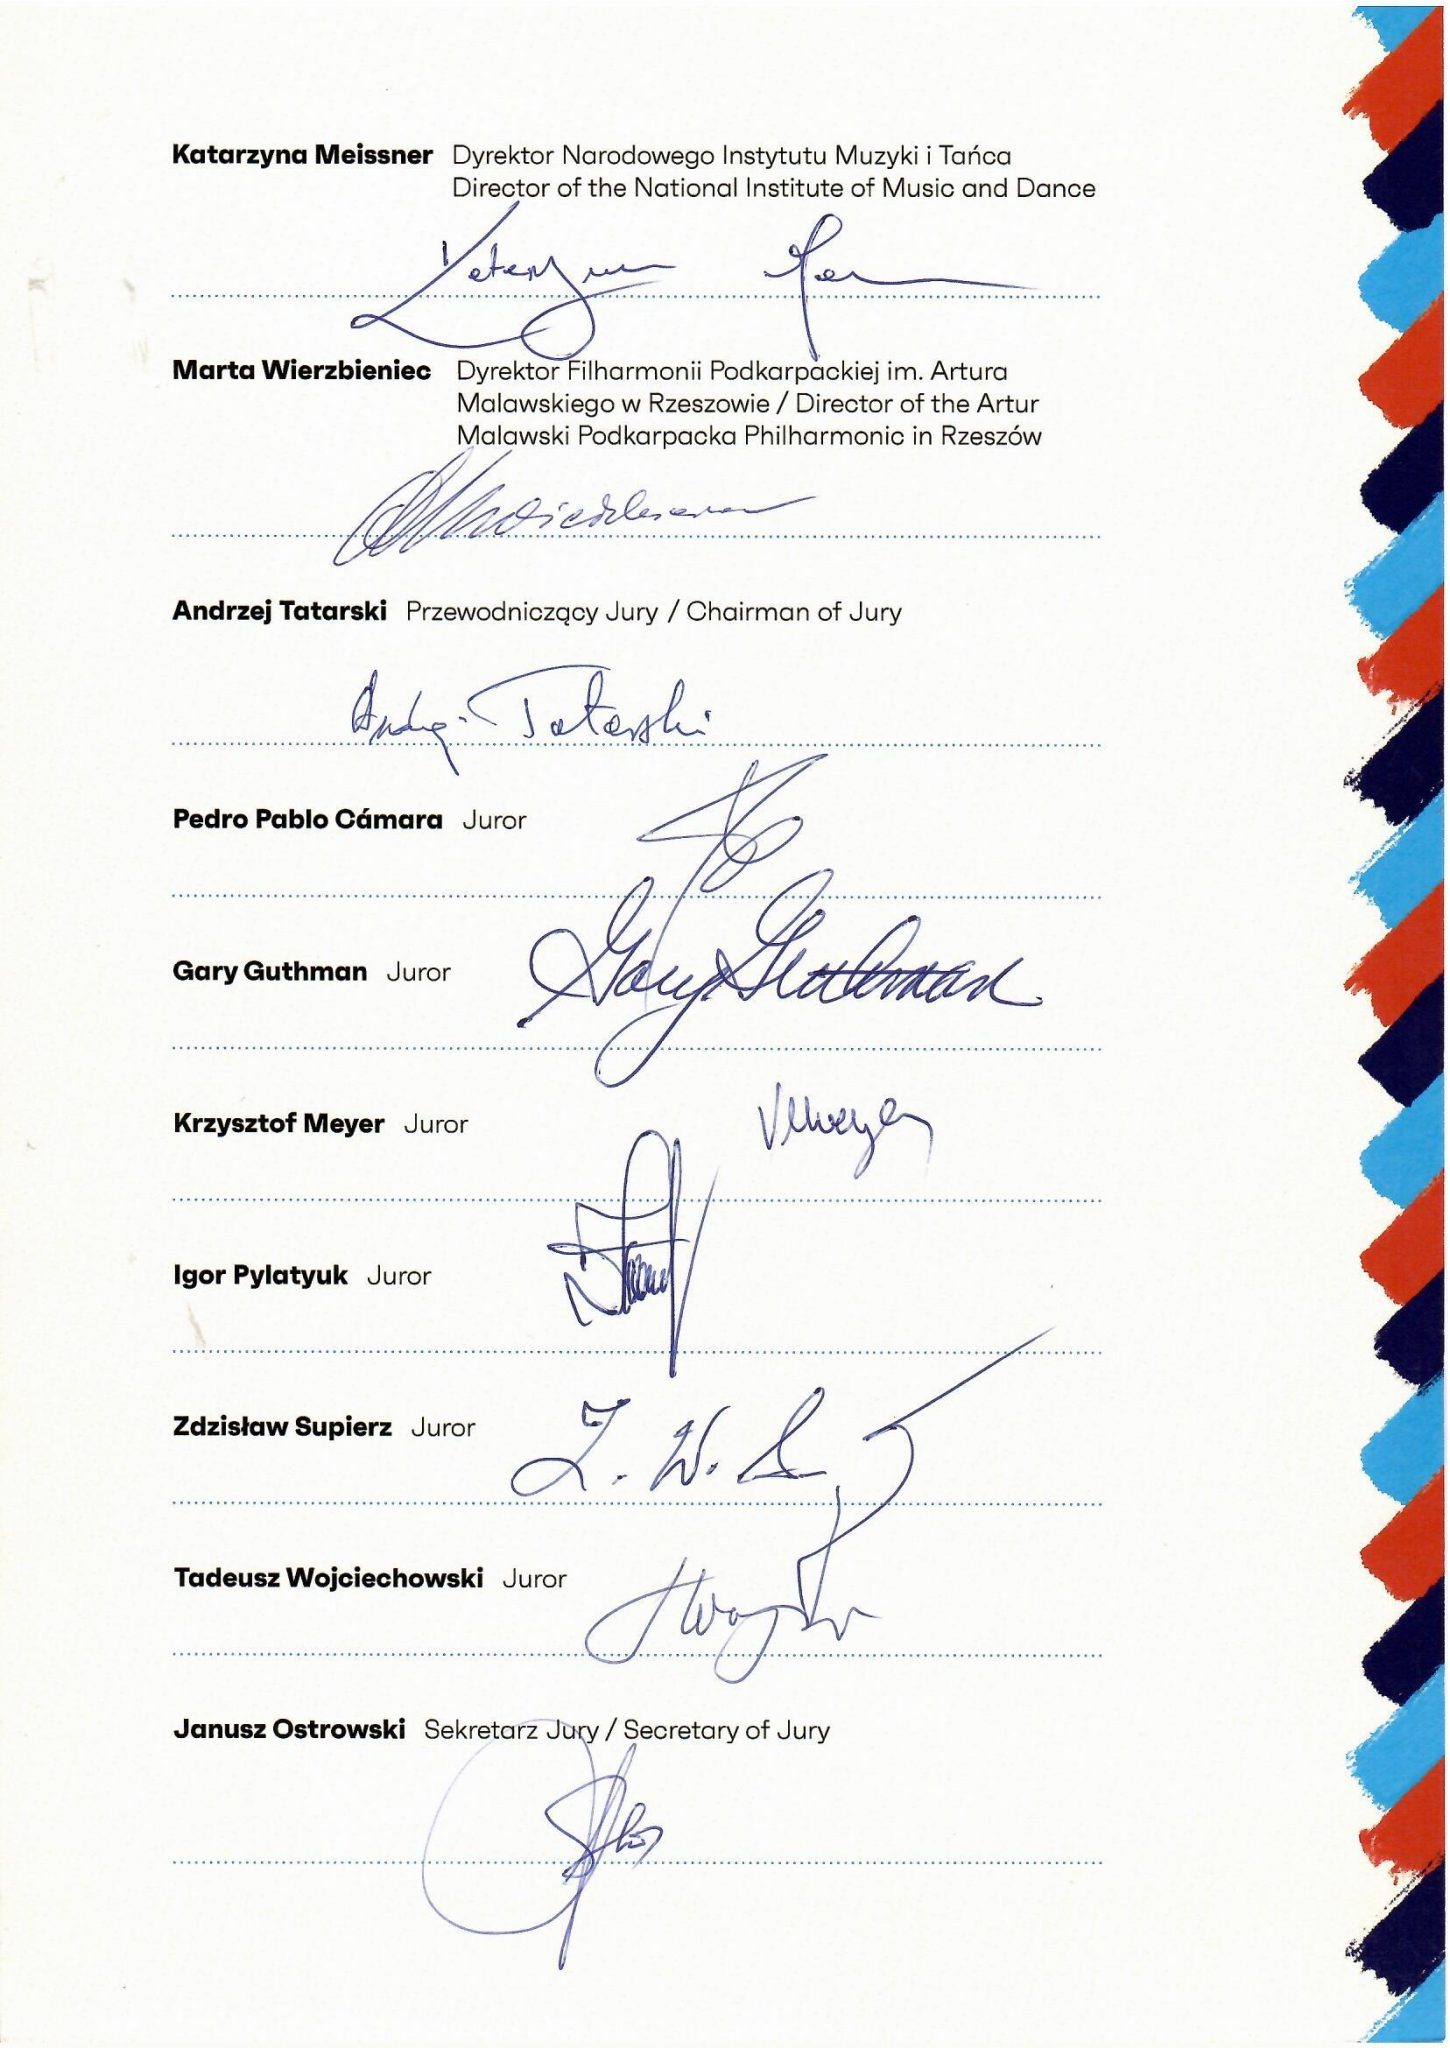 Katarzyna Meissner Dyrektor Narodowego Instytutu Muzyki i Tańca
Director of the National Institute of Music and Dance
Marta Wierzbieniec Dyrektor Filharmonii Podkarpackiej im. Artura
Malawskiego w Rzeszowie / Director of the Artur
Malawski Podkarpacka Philharmonic in Rzeszów
Andrzej Tatarski Przewodniczący Jury / Chairman of Jury
Tatarski
Pedro Pablo Cámara Juror
Gary Guthman Juror
Gary Guthman
Krzysztof Meyer Juror
Igor Pylatyuk Juror
Zdzisław Supierz Juror
Z. W.
Tadeusz Wojciechowski Juror
Janusz Ostrowski Sekretarz Jury / Secretary of Jury